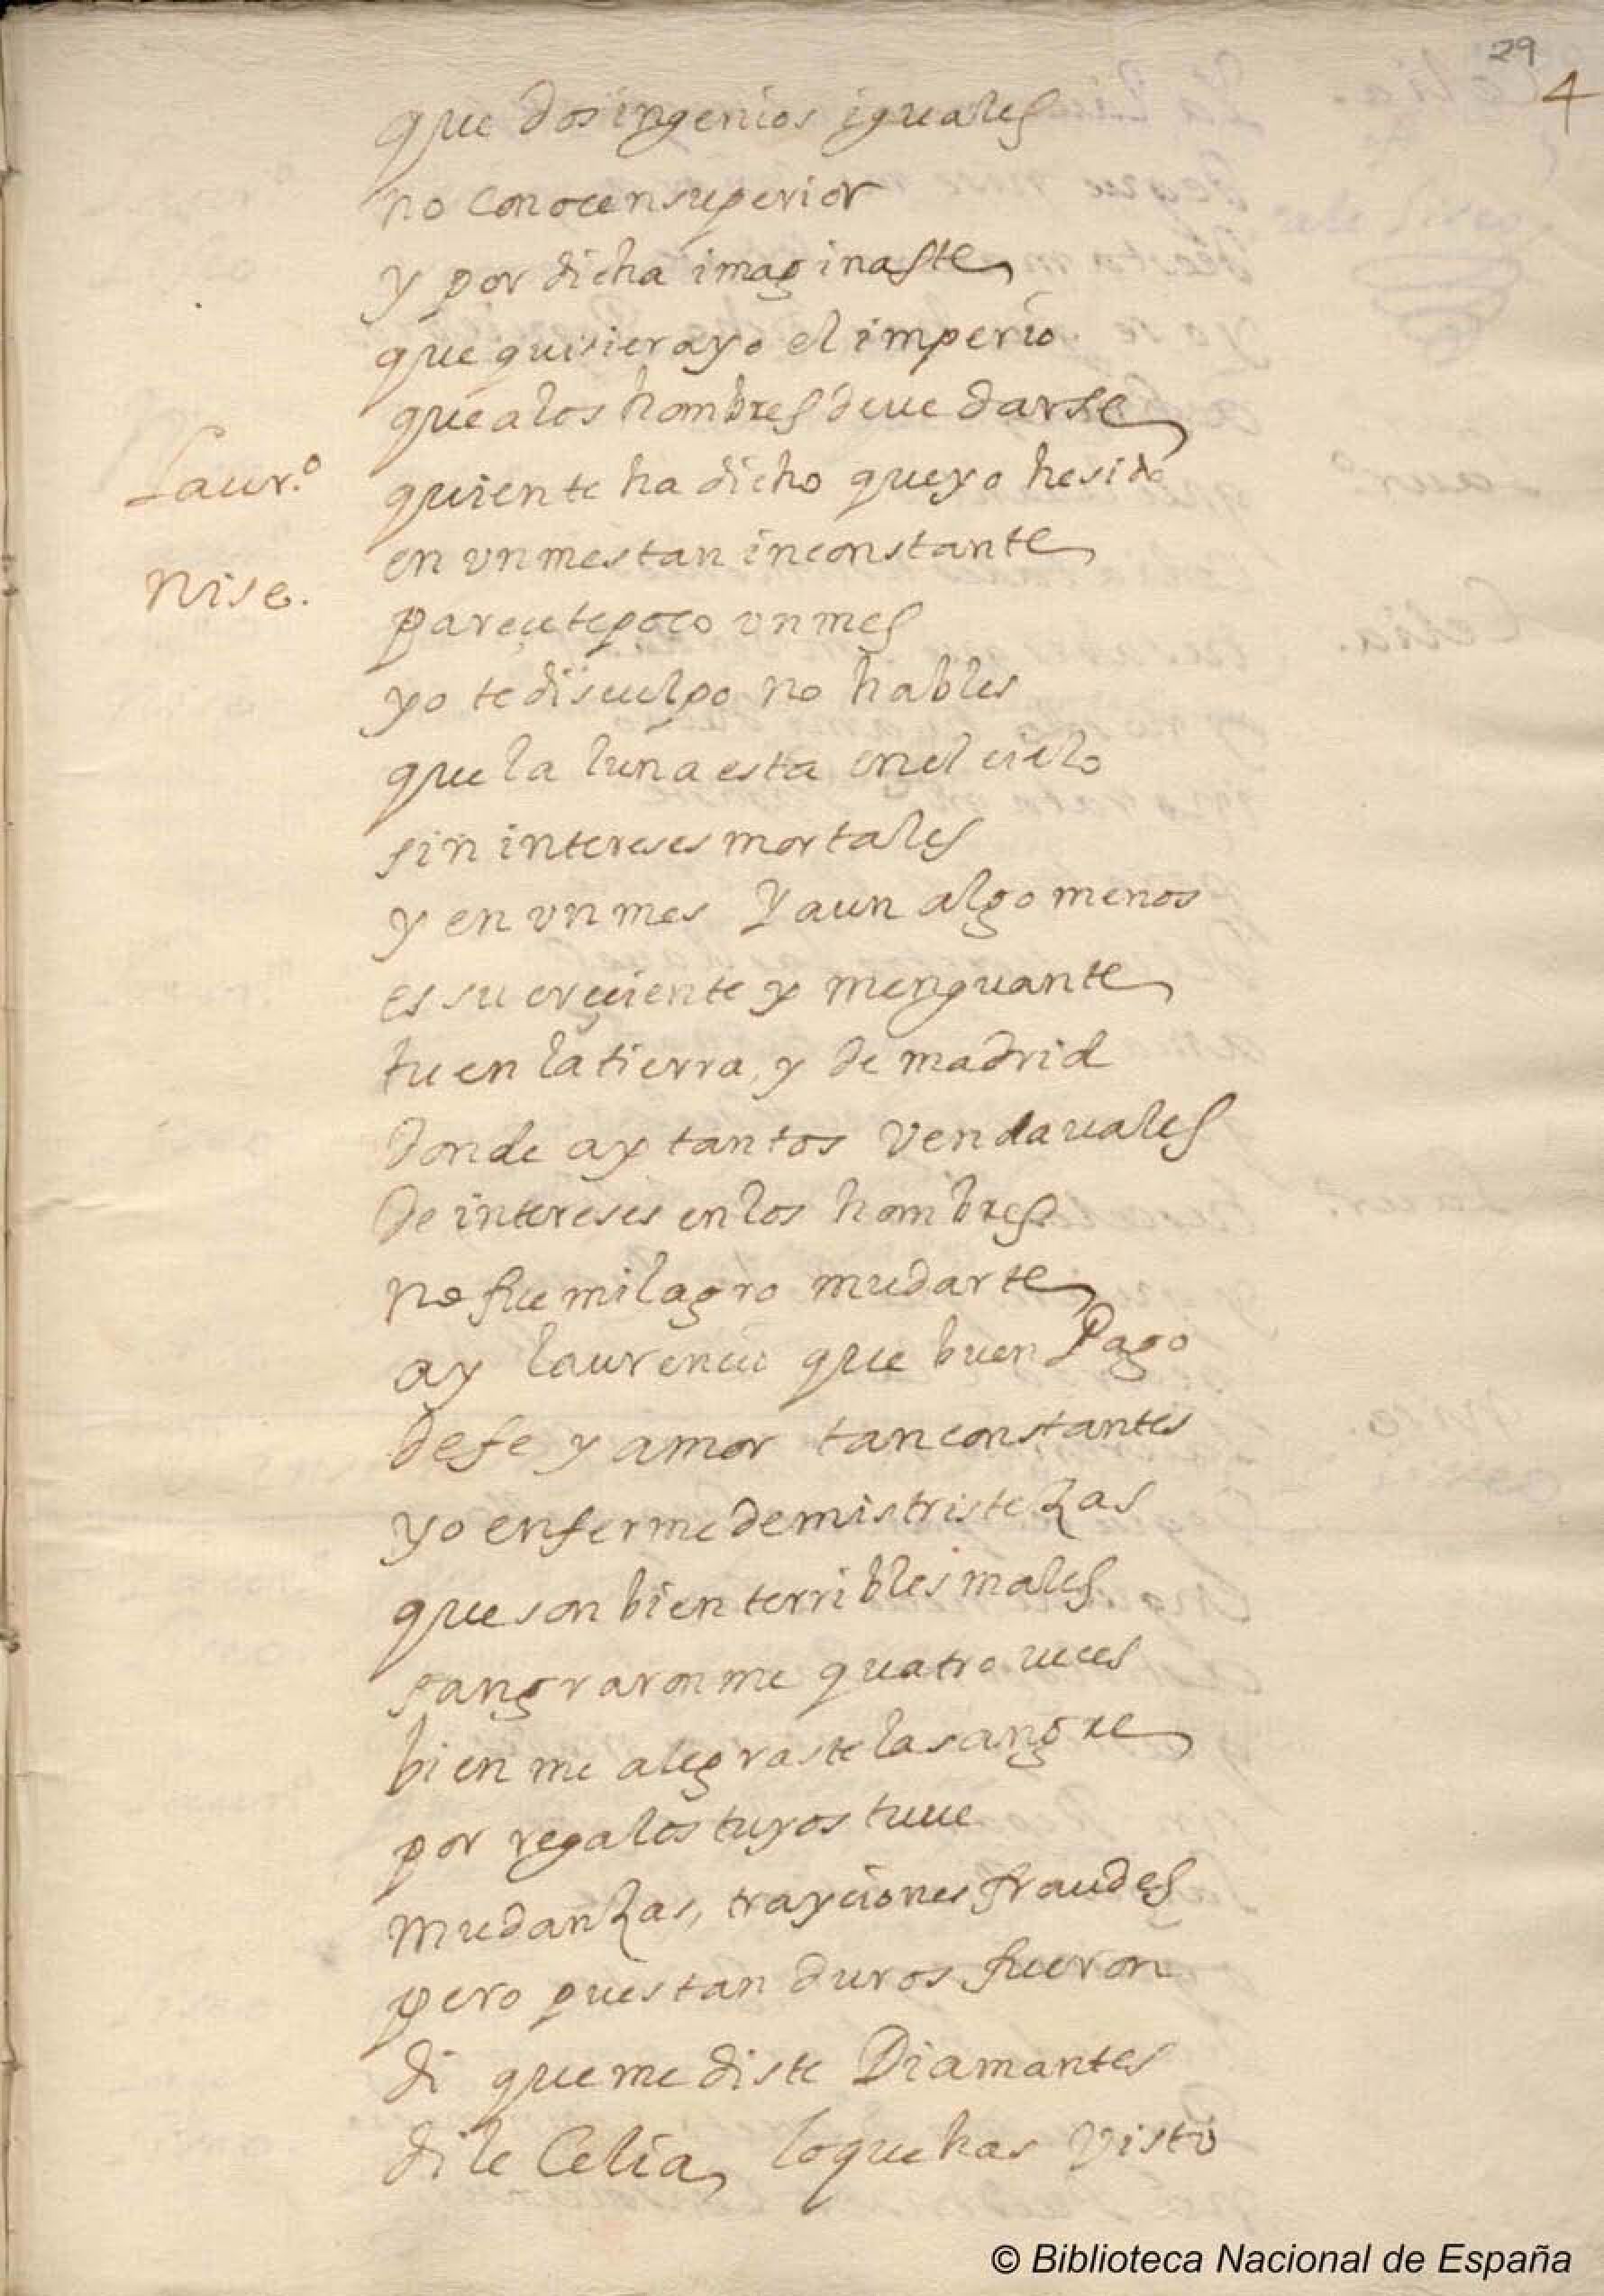 29
4
que dos ingenios iguales
no conocen superior
y por dicha imaginaste
que quisiera yo el imperio
que a los hombres deue darse
Laur.º quien te ha dicho que yo he sido
en vn mes tan inconstante
Nise. pareçete poco vn mes
yo te disculpo no hables
que la luna esta en el cielo
sin intereses mortales
y en vn mes Y aun algo menos
es su creçiente y menguante
tu en la tierra, y de madrid
donde ay tantos vendauales
de intereses en los hombres
no fue milagro mudarte
ay laurencio que buen Pago
de fe y amor tan constantes
yo enferme de mis tristezas
que son bien terribles males
sangraronme quatro veces
bien me alegraste la sangre
por regalos tuyos tuue
mudanzas, trayciones fraudes
pero pues tan duros fueron
di que me diste Diamantes
dile Celia, lo que has visto
© Biblioteca Nacional de España